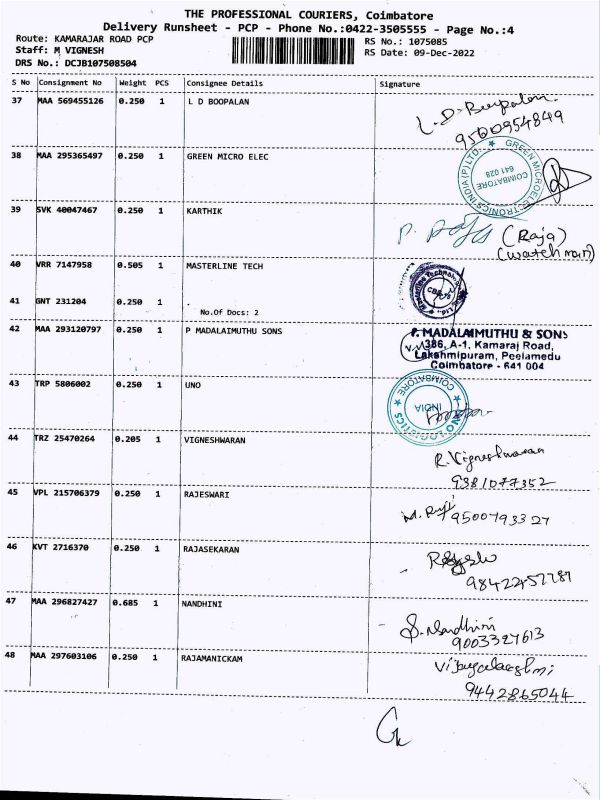 THE PROFESSIONAL COURIERS, Coimbatore
Delivery Runsheet - PCP - Phone No.:0422-3505555 - Page No.:4
Route: KAMARAJAR ROAD PCP
RS No.: 1075085
Staff: M VIGNESH
RS Date: 09-Dec-2022
DRS No.: DCJB107508504
S No Consignment No Weight PCS Consignee Details Signature
37 MAA 569455126 0.250 1 L D BOOPALAN L.D. Boopalan
9500954849
38 MAA 295365497 0.250 1 GREEN MICRO ELEC
GREEN MICROELECTRONICS INDIA (P) LTD. COIMBATORE 641 028
39 SVK 40047467 0.250 1 KARTHIK (Raja)
(watchman)
40 VRR 7147958 0.505 1 MASTERLINE TECH
41 GNT 231204 0.250 1
No.Of Docs: 2
42 MAA 293120797 0.250 1 P MADALAIMUTHU SONS P. MADALAIMUTHU & SONS
386, A-1, Kamaraj Road,
Lakshmipuram, Peelamedu
Coimbatore - 641 004
43 TRP 5806002 0.250 1 UNO
COIMBATORE INDIA
44 TRZ 25470264 0.205 1 VIGNESHWARAN R. Vigneshwaran
9381077352
45 VPL 215706379 0.250 1 RAJESWARI
9500793327
46 KVT 2716370 0.250 1 RAJASEKARAN
47 MAA 296827427 0.685 1 NANDHINI S. Nandhini
9003327613
48 MAA 297603106 0.250 1 RAJAMANICKAM
9442865044